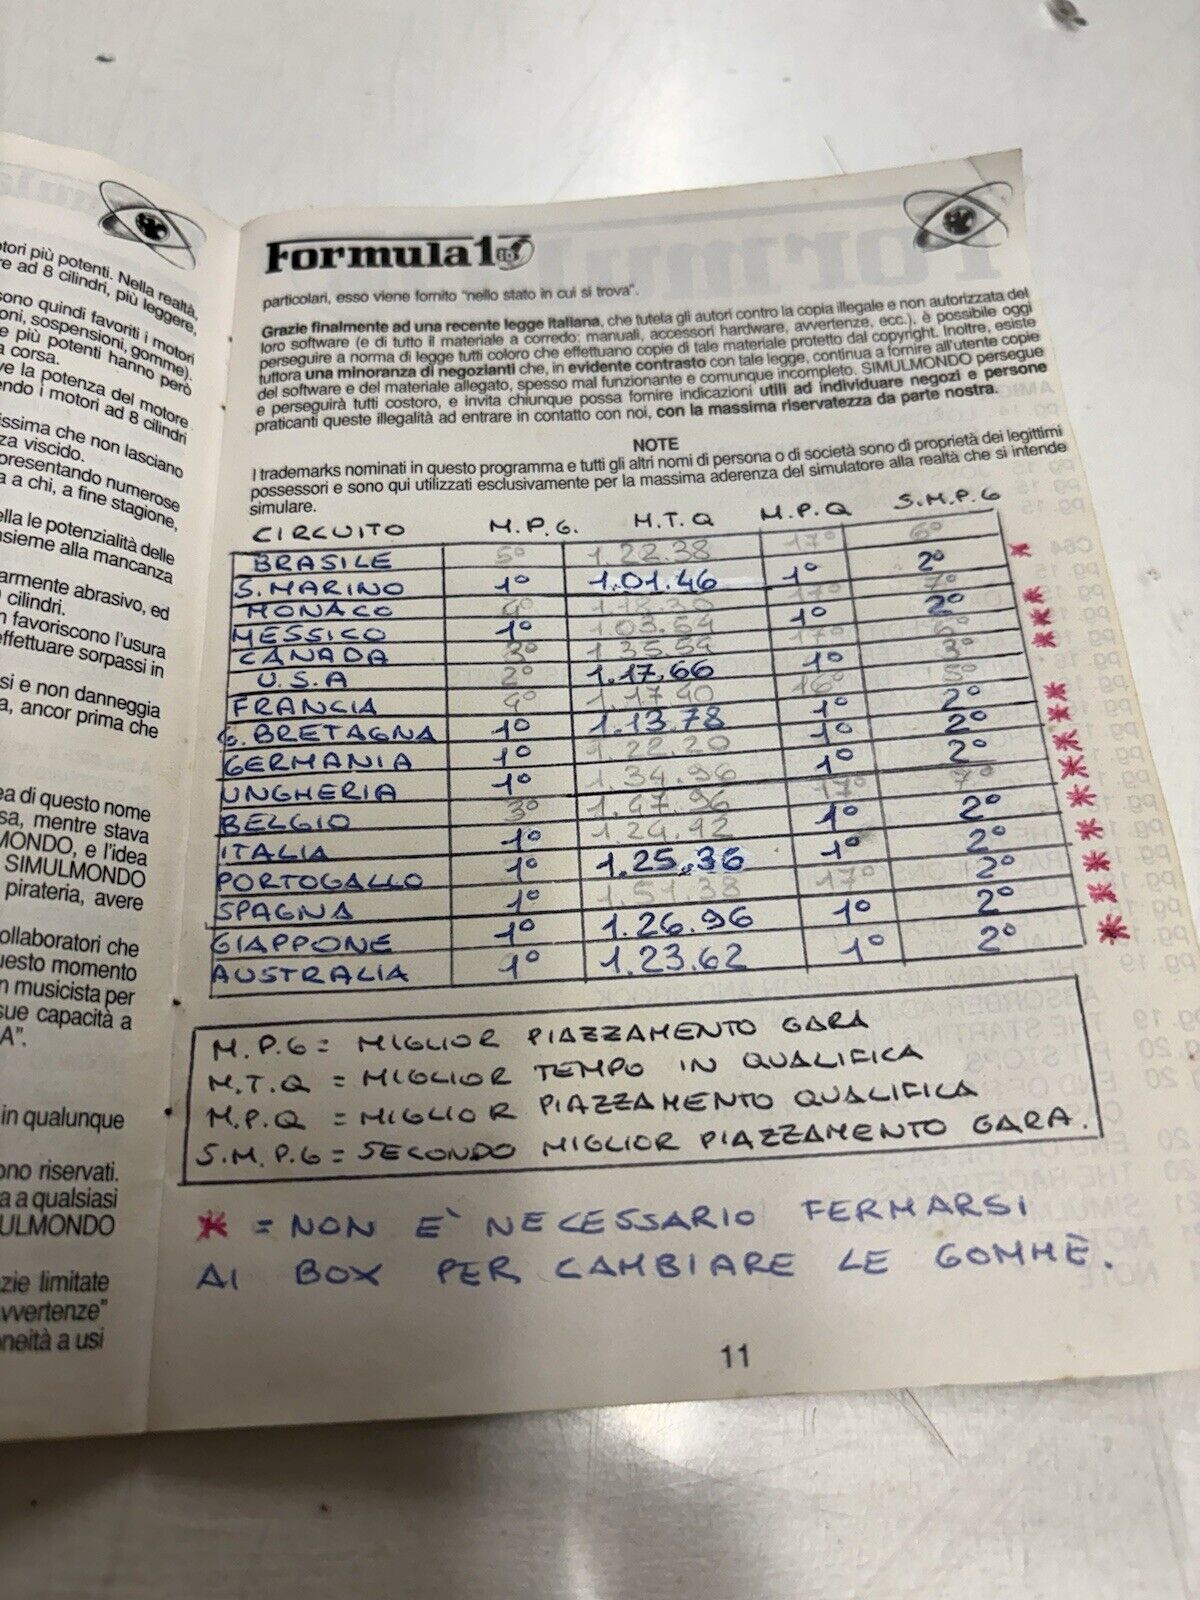 otori più potenti. Nella realtà,
re ad 8 cilindri, più leggere,
sono quindi favoriti i motori
oni, sospensioni, gomme).
e più potenti hanno però
a corsa.
ve la potenza del motore
endo i motori ad 8 cilindri
issima che non lasciano
za viscido.
presentando numerose
a a chi, a fine stagione,
ella le potenzialità delle
nsieme alla mancanza
armente abrasivo, ed
cilindri.
n favoriscono l'usura
effettuare sorpassi in
si e non danneggia
a, ancor prima che
ea di questo nome
sa, mentre stava
MONDO, e l'idea
SIMULMONDO
pirateria, avere
ollaboratori che
uesto momento
n musicista per
sue capacità a
A".
in qualunque
ono riservati.
a a qualsiasi
ULMONDO
zie limitate
vvertenze"
neità a usi
Formula1
particolari, esso viene fornito "nello stato in cui si trova".
Grazie finalmente ad una recente legge italiana, che tutela gli autori contro la copia illegale e non autorizzata del
loro software (e di tutto il materiale a corredo: manuali, accessori hardware, avvertenze, ecc.), è possibile oggi
perseguire a norma di legge tutti coloro che effettuano copie di tale materiale protetto dal copyright. Inoltre, esiste
tuttora una minoranza di negozianti che, in evidente contrasto con tale legge, continua a fornire all'utente copie
del software e del materiale allegato, spesso mal funzionante e comunque incompleto. SIMULMONDO persegue
e perseguirà tutti costoro, e invita chiunque possa fornire indicazioni utili ad individuare negozi e persone
praticanti queste illegalità ad entrare in contatto con noi, con la massima riservatezza da parte nostra.
NOTE
I trademarks nominati in questo programma e tutti gli altri nomi di persona o di società sono di proprietà dei legittimi
possessori e sono qui utilizzati esclusivamente per la massima aderenza del simulatore alla realtà che si intende
simulare.
CIRCUITO M.P.G. M.T.Q M.P.Q S.M.P.G
BRASILE 5° 1.22.38 17° 6°
S.MARINO 1° 1.01.46 1° 2° *
MONACO 4° 1.18.30 17° 7°
MESSICO 1° 1.03.54 1° 2° *
CANADA 2° 1.35.54 17° 6° *
U.S.A 2° 1.17.66 1° 3° *
FRANCIA 4° 1.17.40 16° 5°
G.BRETAGNA 1° 1.13.78 1° 2° *
GERMANIA 1° 1.22.20 1° 2° *
UNGHERIA 1° 1.34.96 1° 2° *
BELGIO 3° 1.47.96 17° 7° *
ITALIA 1° 1.24.42 1° 2° *
PORTOGALLO 1° 1.25.36 1° 2° *
SPAGNA 1° 1.51.38 17° 2° *
GIAPPONE 1° 1.26.96 1° 2° *
AUSTRALIA 1° 1.23.62 1° 2° *
M.P.G = MIGLIOR PIAZZAMENTO GARA
M.T.Q = MIGLIOR TEMPO IN QUALIFICA
M.P.Q = MIGLIOR PIAZZAMENTO QUALIFICA
S.M.P.G = SECONDO MIGLIOR PIAZZAMENTO GARA.
* = NON E' NECESSARIO FERMARSI
AI BOX PER CAMBIARE LE GOMME.
11